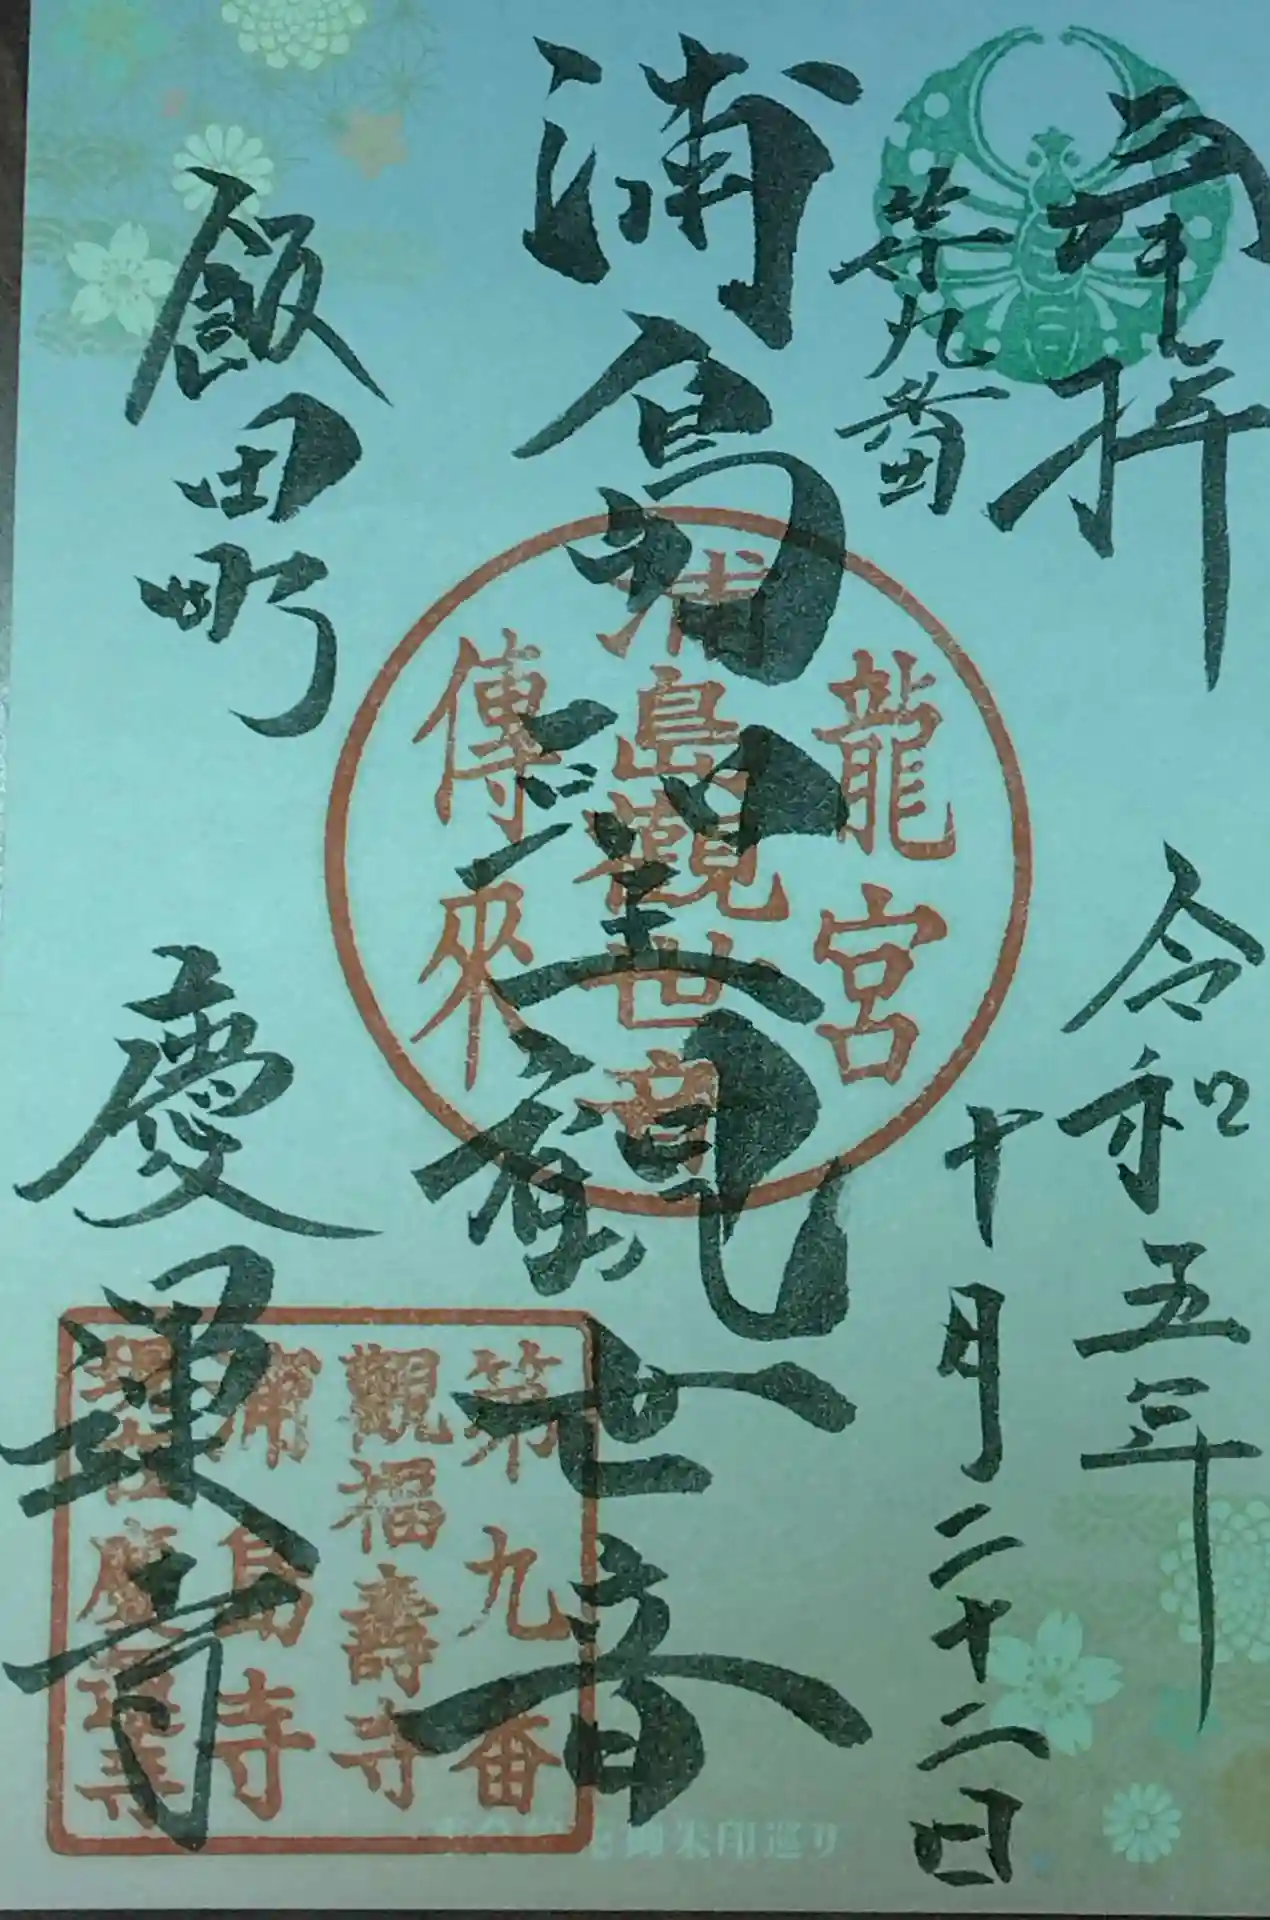 奉拝
第九番
令和五年
十月二十二日
浦島聖観世音
龍宮
浦島觀世音
傳來
飯田町
慶運寺
第九番
觀福壽寺
浦島寺
慶運寺
御朱印巡り